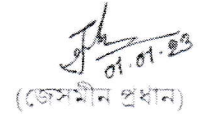 01.01.23
(জেসমীন প্রধান)